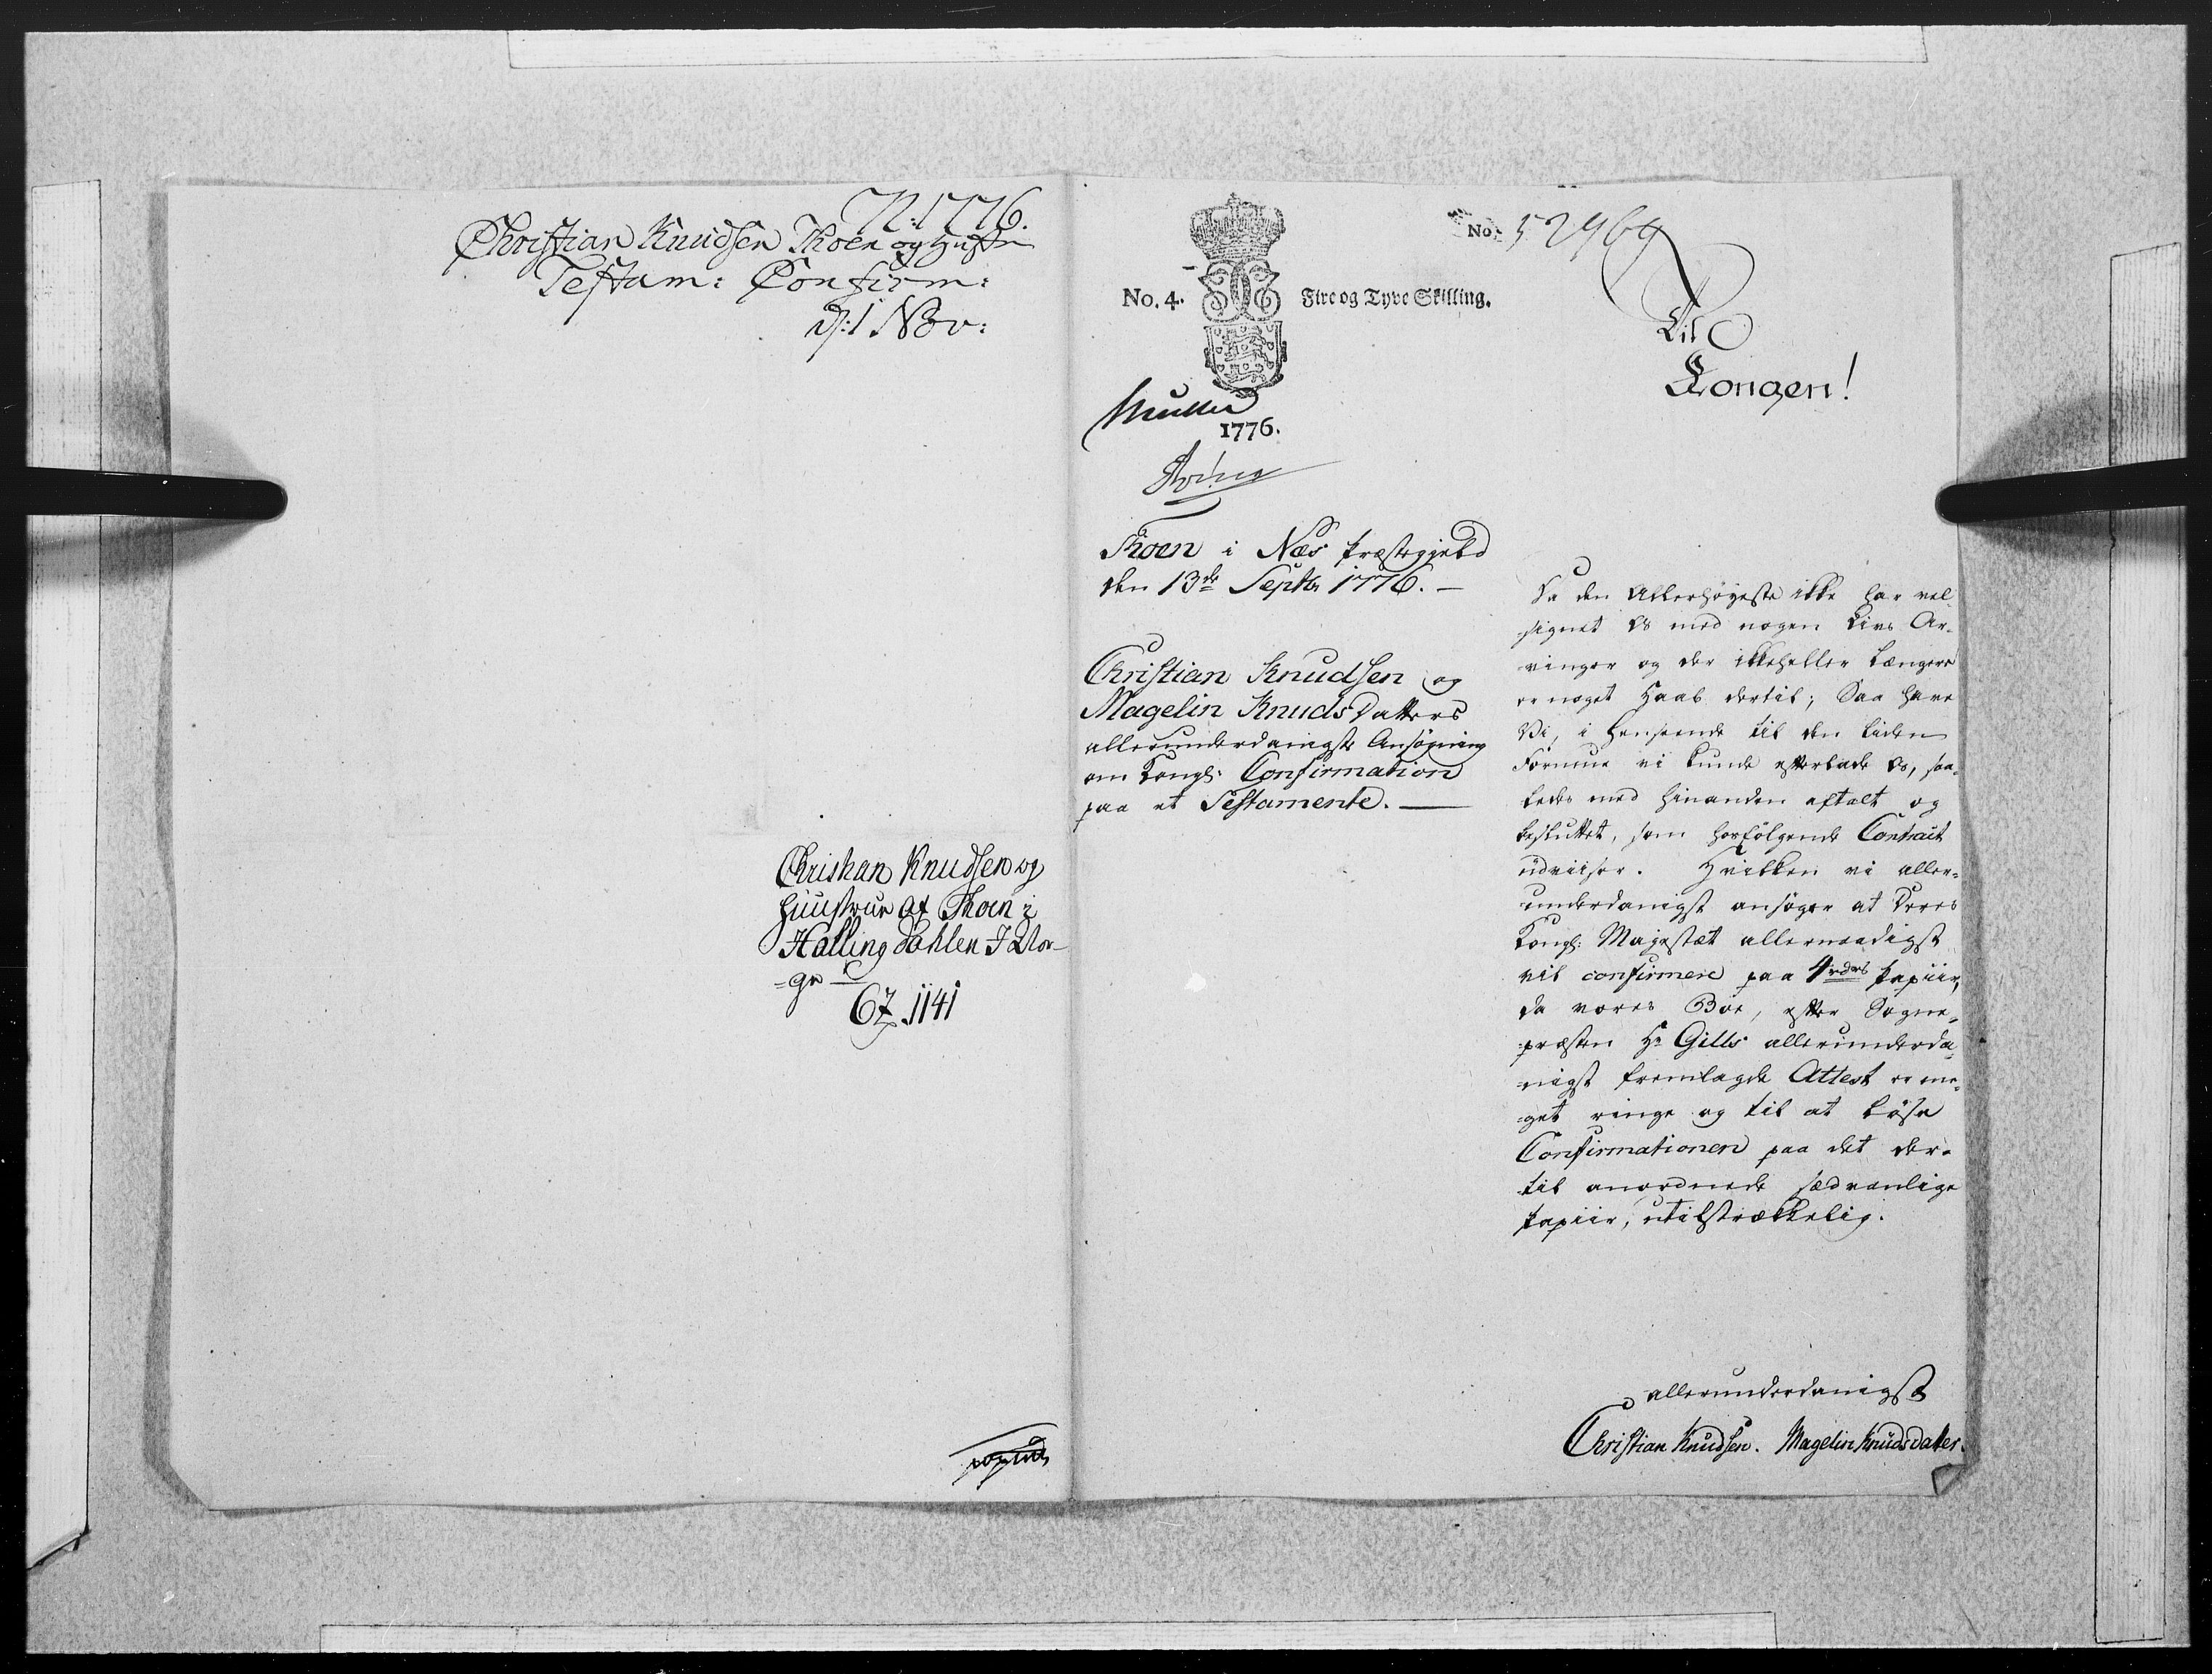 N: 1776.
Christian Knudsen Thoen og Hustr
Testam: Confirm:
d: 1 Nov:
Christian Knudsen og
Huustrue af Thoen i
Halling Dahlen I Nor-
=ge
67. 1141
No. 4.
Fire og Tyve Skilling.
1776.
Thoen i Næs Præstegield
den 13de Septbr 1776. –
Christian Knudsen og
Magelin KnudsDatters
allerunderdanigste Ansøgning
om Kongl: Confirmation
paa et Testamente. —
No. 52969
Til
Kongen!
Da den Allerhøyeste ikke har vel-
signet Os med nogen Livs Ar-
vinger og der ikkeheller længere
er noget Haab dertil; Saa have
Vi, i Henseende til den liden
Formue vi kunde efterlade Os, saa-
ledes med hinanden aftalt og
besluttet, som hosfølgende Contract
udviiser. Hvilken vi aller-
underdanigst ansøger at Deres
Kongl: Majestæt allernaadigst
vil confirmere paa 4 rdrs Papiir,
da vores Boe, efter Sogne-
præsten Hr Gills allerunderda-
nigst fremlagde Attest er me-
get ringe og til at løse
Confirmationen paa det der-
til anordnede sædvanlige
Papiir, utilstrækkelig.
allerunderdanigst
Christian Knudsen. Magelin Knudsdatter.